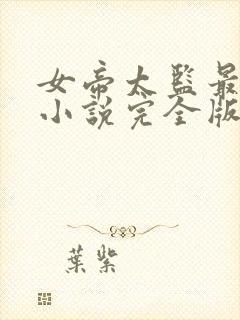 女帝太監最
小說完全版
葉紫